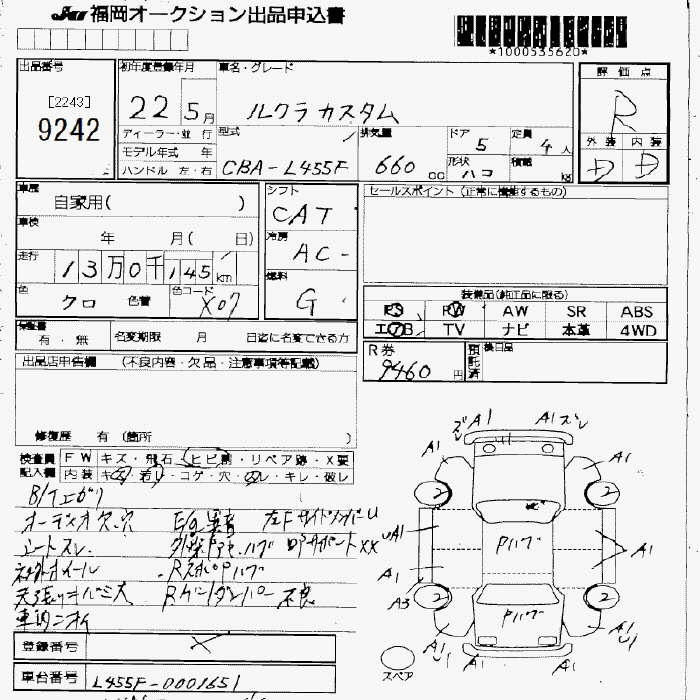 JU 福岡オークション出品申込書
*1000535620*
出品番号
[2243]
9242
初年度登録年月
22 5月
車名・グレード
ルクラカスタム
評価点
R
ディーラー・並 行
モデル年式 年
ハンドル 左・右
型式
CBA-L455F
排気量
660 cc
ドア
5
定員
4人
形状
ハコ
積載
kg
外装 内装
D D
車歴
自家用( )
車検
年 月( 日)
走行
13万0千145km
色
クロ 色替
色コード
X07
シフト
CAT
冷房
AC
燃料
G
セールスポイント (正常に機能するもの)
装備品(純正品に限る)
PS PW AW SR ABS
エアB TV ナビ 本革 4WD
保証書
有・無
名変期限 月 日迄に名変できる方
R券
9460円
預託済
後日品
出品店申告欄 (不良内容・欠品・注意事項等記載)
修復歴 有 (箇所 )
検査員
記入欄
FW キズ・飛石・ヒビ割・リペア跡・X要
内装 キズ・若干・コゲ・穴・スレ・キレ・破レ
オーディオ欠、穴
E/G異音
シートスレ
外板
Rゲートダンパー不良
車内ニオイ
登録番号
車台番号 L455F-0001651
A1 A1 スレ
A1 A1
2 2
A1
Pハゲ
A1
A1
A3
2 2
Pハゲ
A1 A1
U1 U1
スペア